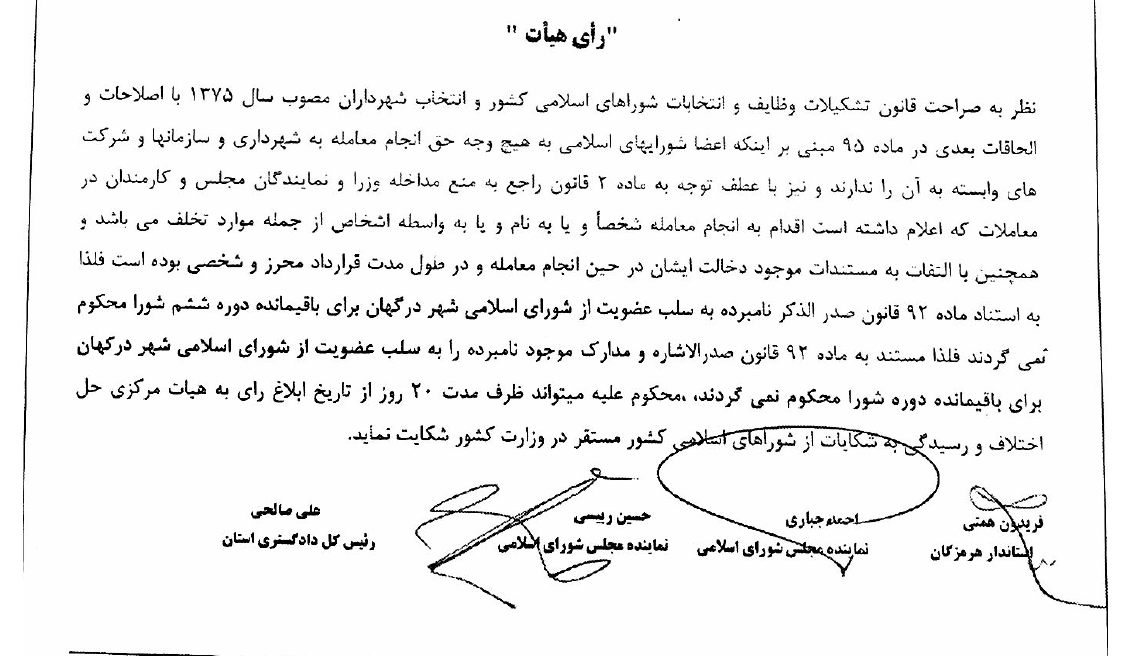 "رأی هیأت "
نظر به صراحت قانون تشکیلات وظایف و انتخابات شوراهای اسلامی کشور و انتخاب شهرداران مصوب سال ۱۳۷۵ با اصلاحات و
الحاقات بعدی در ماده ۹۵ مبنی بر اینکه اعضا شورایهای اسلامی به هیچ وجه حق انجام معامله به شهرداری و سازمانها و شرکت
های وابسته به آن را ندارند و نیز با عطف توجه به ماده ۲ قانون راجع به منع مداخله وزرا و نمایندگان مجلس و کارمندان در
معاملات که اعلام داشته است اقدام به انجام معامله شخصأ و یا به نام و یا به واسطه اشخاص از جمله موارد تخلف می باشد و
همچنین با التفات به مستندات موجود دخالت ایشان در حین انجام معامله و در طول مدت قرارداد محرز و شخصی بوده است فلذا
به استناد ماده ۹۲ قانون صدر الذکر نامبرده به سلب عضویت از شورای اسلامی شهر درگهان برای باقیمانده دوره ششم شورا محکوم
نمی گردند فلذا مستند به ماده ۹۲ قانون صدرالاشاره و مدارک موجود نامبرده را به سلب عضویت از شورای اسلامی شهر درکهان
برای باقیمانده دوره شورا محکوم نمی گردند، ،محکوم علیه میتواند ظرف مدت ۲۰ روز از تاریخ ابلاغ رای به هیات مرکزی حل
اختلاف و رسیدگی به شکایات از شوراهای اسلامی کشور مستقر در وزارت کشور شکایت نماید.
فریدون همتی احمد جباری حسین رییسی علی صالحی
استاندار هرمزگان نماینده مجلس شورای اسلامی نماینده مجلس شورای اسلامی رئیس کل دادگستری استان